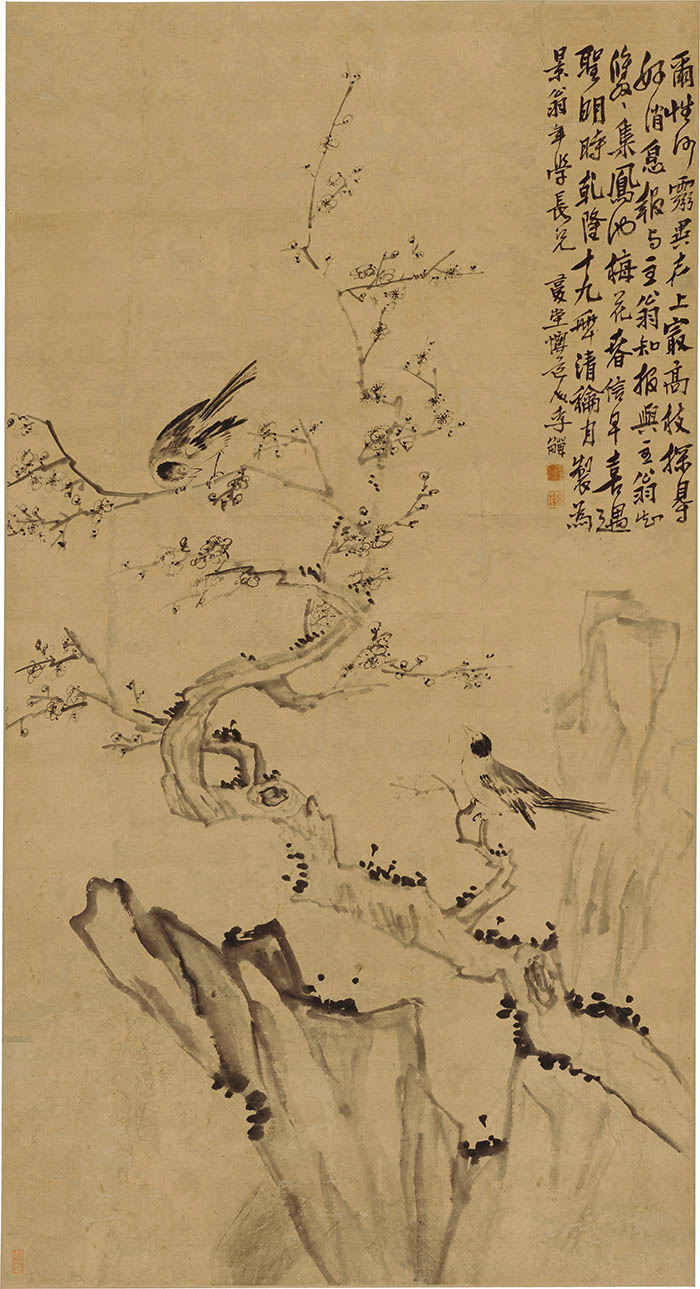 爾性何靈異飛上最高枝探得
好消息報与主翁知報與主翁知
雙〻集鳳池梅花春信早喜遇
聖明時乾隆十九年清龢月製為
景翁年學長兄　復堂懊道人李鱓